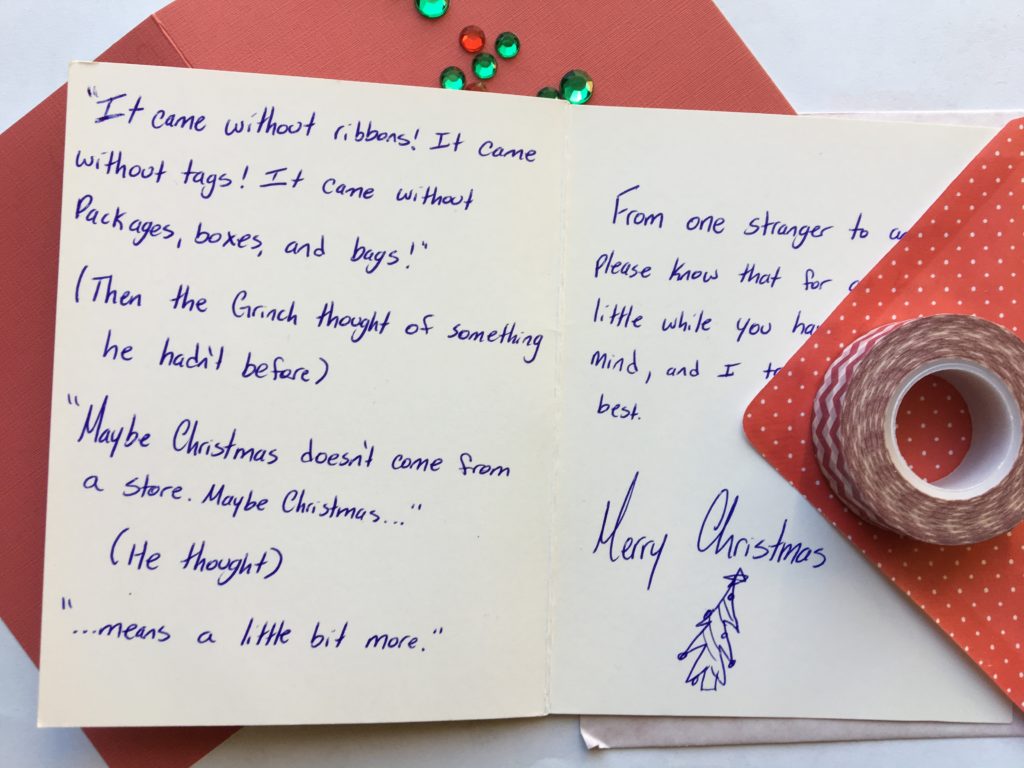 "It came without ribbons! It came
without tags! It came without
Packages, boxes, and bags!"
(Then the Grinch thought of something
he hadn't before)
"Maybe Christmas doesn't come from
a store. Maybe Christmas..."
(He thought)
"...means a little bit more."
From one stranger to
please know that for
little while you
mind, and I
best.
Merry Christmas